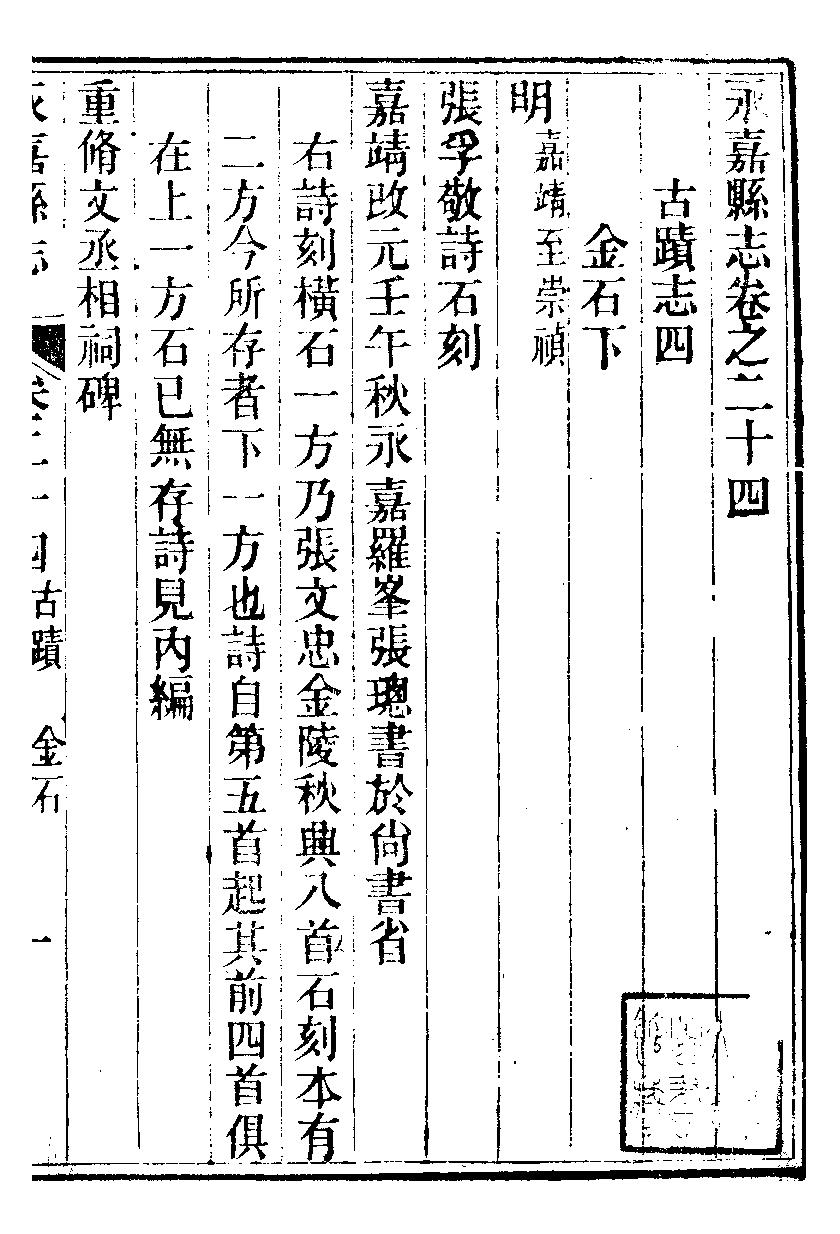 永嘉縣志卷之二十四
古蹟志四
金石下
明嘉靖至崇禎
張孚敬詩石刻
嘉靖改元壬午秋永嘉羅峯張璁書於尙書省
右詩刻橫石一方乃張文忠金陵秋興八首石刻本有
二方今所存者下一方也詩自第五首起其前四首俱
在上一方石已無存詩見內編
重脩文丞相祠碑
永嘉縣志 卷二十四古蹟 金石 一